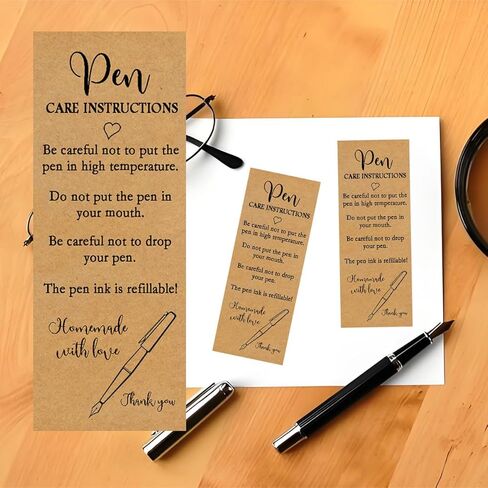 Pen
CARE INSTRUCTIONS
Be careful not to put the
pen in high temperature.
Do not put the pen in
your mouth.
Be careful not to drop
your pen.
The pen ink is refillable!
Homemade
with love
Thank you
Pen
CARE INSTRUCTIONS
Be careful not to put the
pen in high temperature.
Do not put the pen in
your mouth.
Be careful not to drop
your pen.
The pen ink is refillable!
Homemade
with love
Thank you
Pen
CARE INSTRUCTIONS
Be careful not to put the
pen in high temperature.
Do not put the pen in
your mouth.
Be careful not to drop
your pen.
The pen ink is refillable!
Homemade
with love
Thank you